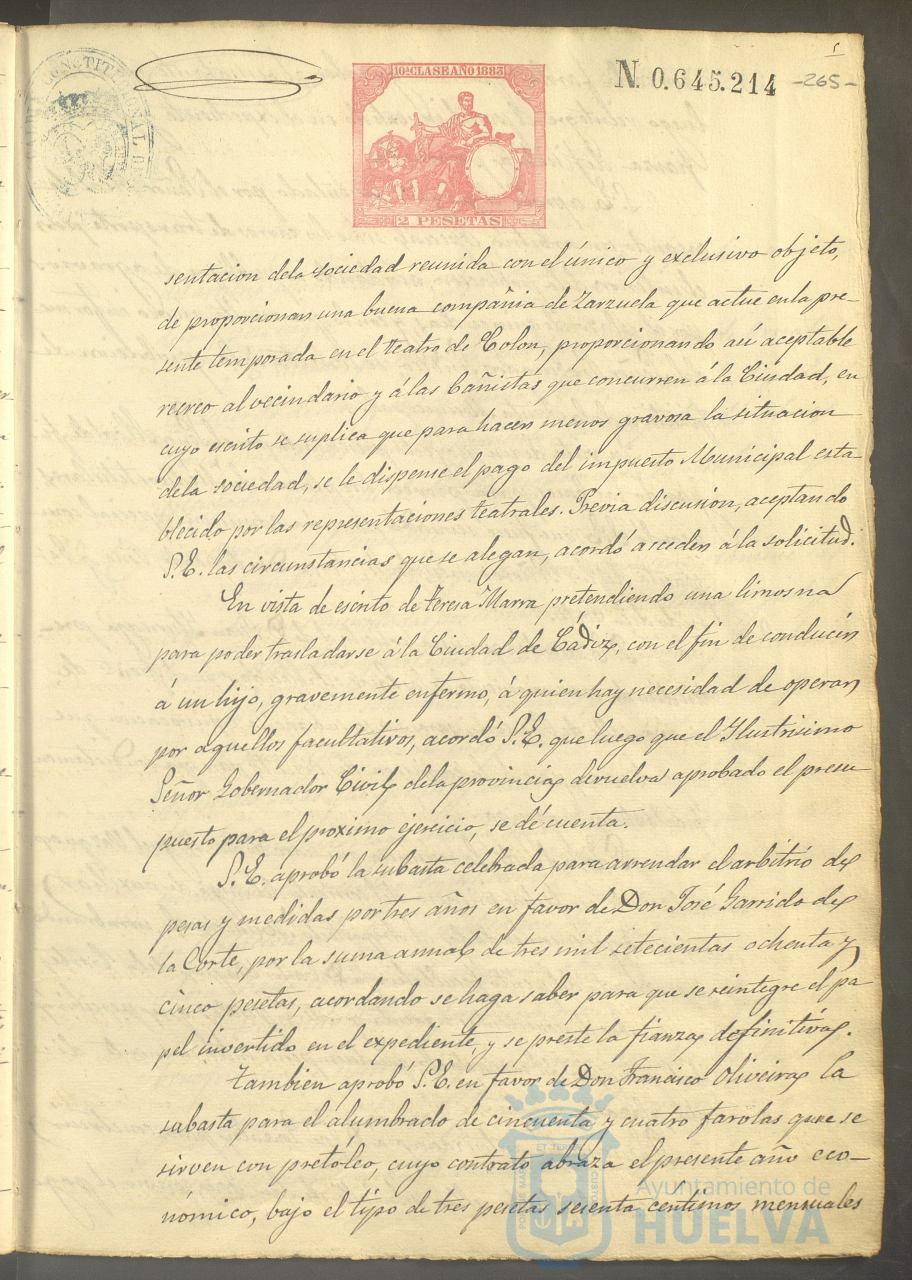 10ª CLASE AÑO 1883
N. 0.645.214
-265-
2 PESETAS
sentacion dela sociedad reunida con el único y exclusivo objeto,
de proporcionar una buena compañia de Zarzuela que actue en la pre-
sente temporada en el teatro de Colon, proporcionando asi aceptable
recreo al vecindario y á las Bañistas que concurren á la Ciudad, en
cuyo escrito se suplica que para hacer menos gravosa la situacion
dela sociedad, se le dispense el pago del impuesto Municipal esta-
blecido por las representaciones teatrales. Previa discusion, aceptando
S.E. las circunstancias que se alegan, acordó acceder á la solicitud.
En vista de escrito de Teresa Marra pretendiendo una limosna
para poder trasladarse á la Ciudad de Cádiz, con el fin de conducir
á un hijo, gravemente enfermo, á quien hay necesidad de operar
por aquellos facultativos, acordó S.E. que luego que el Ilustrisimo
Señor Gobernador Civil dela provincia devuelva aprobado el presu
puesto para el proximo ejercicio, se dé cuenta.
S.E. aprobó la subasta celebrada para arrendar el arbitrio de
pesas y medidas por tres años en favor de Don José Garrido de
la Corte, por la suma annal de tres mil setecientas ochenta y
cinco pesetas, acordando se haga saber para que se reintegre el pa
pel invertido en el expediente, y se preste la fianza definitiva.
Tambien aprobó S.E. en favor de Don Francisco Oliveira la
subasta para el alumbrado de cincuenta y cuatro farolas que se
sirven con pretóleo, cuyo contrato abraza el presente año eco-
nómico, bajo el tipo de tres pesetas sesenta centimos mensuales
Ayuntamiento de
HUELVA